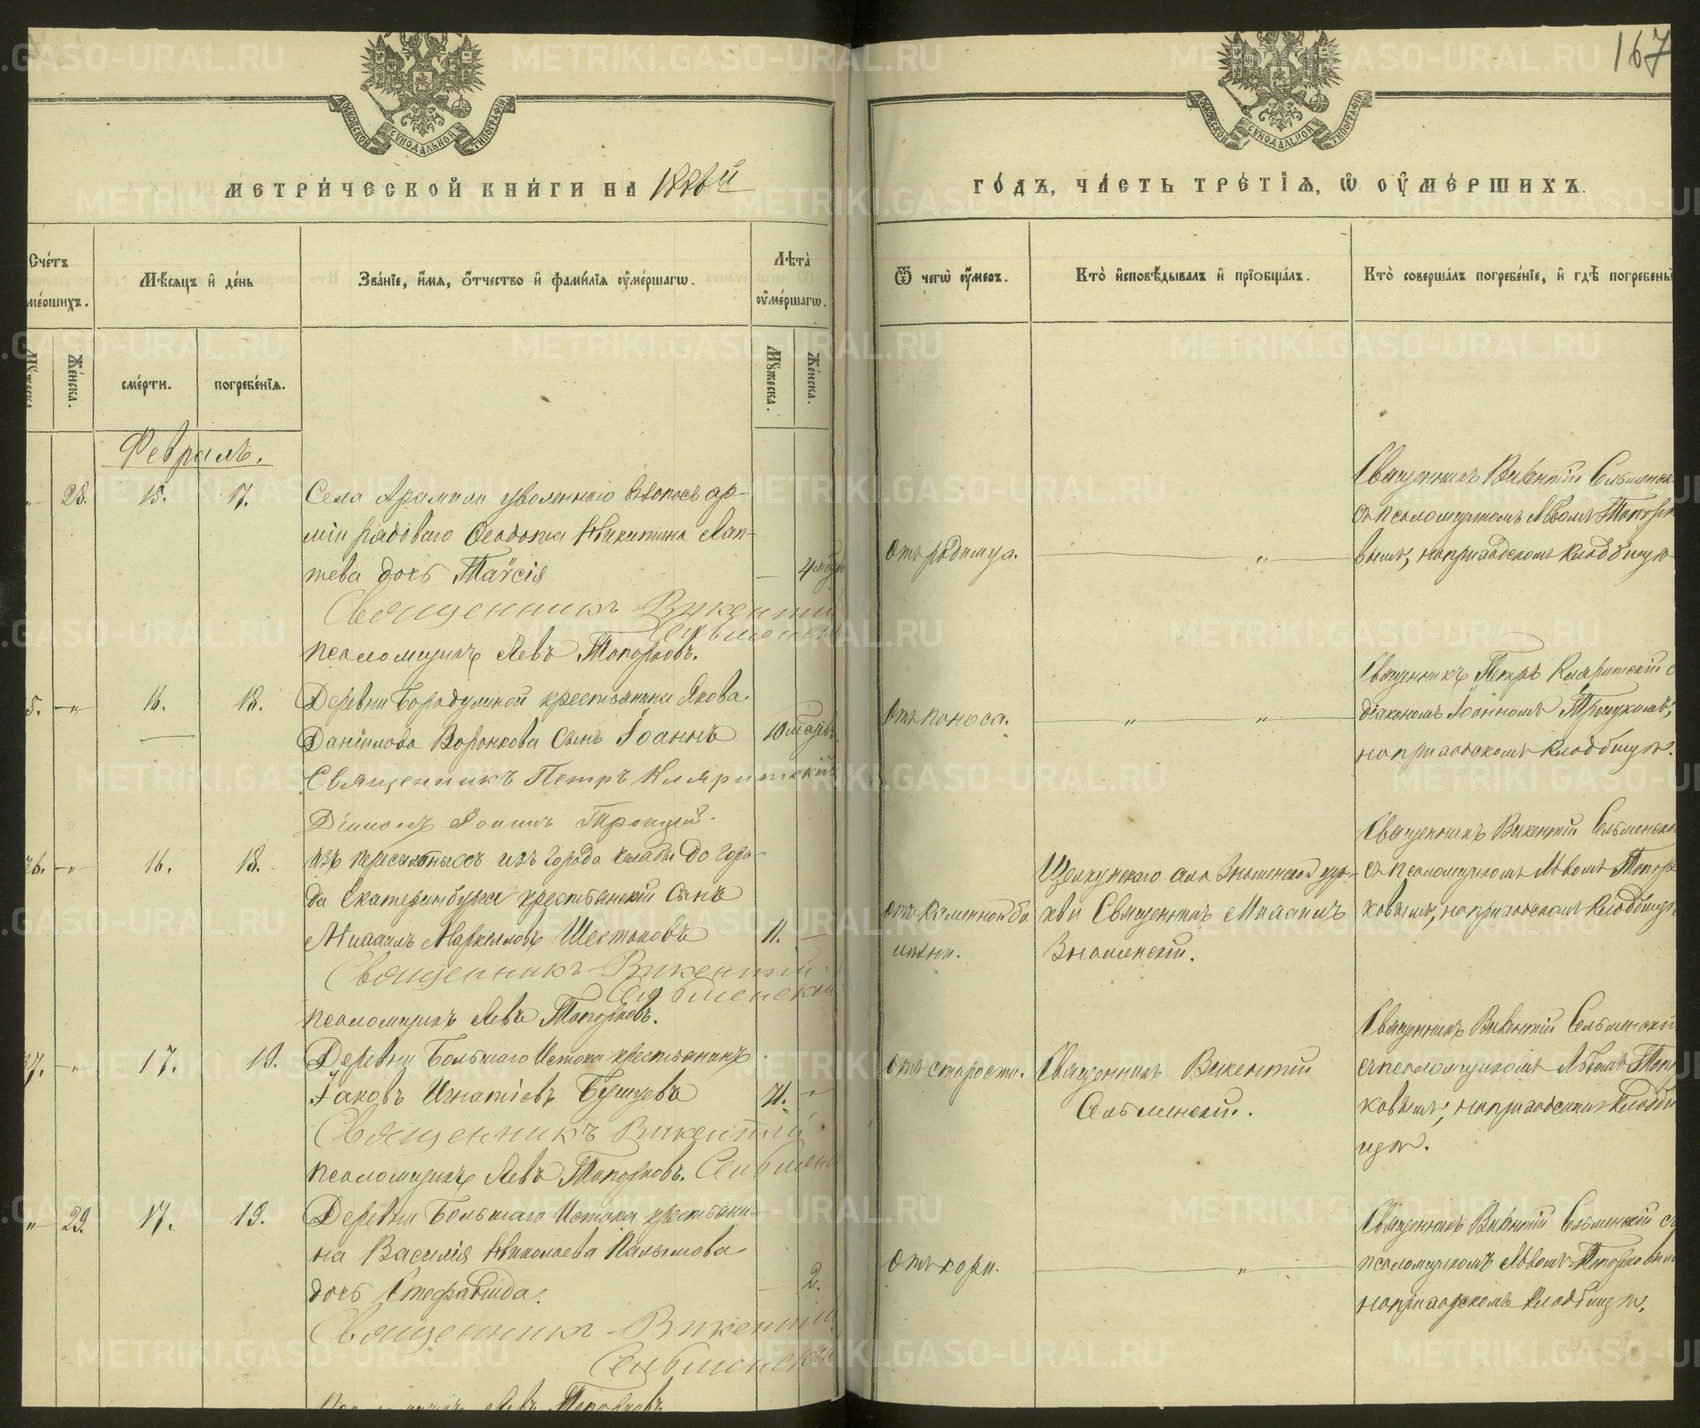 167
МОСКОВСКОЙ СѴНОДАЛЬНОЙ ТИПОГРАФІИ
МОСКОВСКОЙ СѴНОДАЛЬНОЙ ТИПОГРАФІИ
МЕТРИ́ЧЕСКОЙ КНИ́ГИ НА 1886й
ГО́ДЪ, ЧА́СТЬ ТРЕ́ТІѦ, Ѡ ОУМЕ́РШИХЪ.
Сче́тъ
ме́ршихъ.
Мѣ́сѧцъ и де́нь
Зва́ніе, и́мѧ, о́тчество и фами́лія оуме́ршагѡ.
Лѣта̀
оуме́ршагѡ.
Ѿ чегѡ̀ оу́меръ.
Кто̀ исповѣ́дывалъ и прїобща́лъ.
Кто̀ соверша́лъ погребе́ніе, и гдѣ̀ погребены̀
Же́нска.
сме́рти.
погребе́нїѧ.
Мꙋ́жеска.
Же́нска.
Февраль.
28. 15. 17.
Села Арамили уволеннаго въ запасъ ар-
міи рядоваго Никитина Лап-
тева дочь Таисія
Священникъ Викентій
Сельменскій
Псаломщикъ Левъ Топорковъ.
Отъ родимца.
Священникъ Викентій Сельменск
съ псаломщикомъ Львомъ Топорко
вымъ, на приходскомъ кладбищѣ
5. 16. 18.
Деревни Бородулиной крестьянина Якова
Данилова Воронкова сынъ Іоаннъ
Священникъ Петръ Кляритскій
Діаконъ Іоаннъ Троицкій
Отъ поноса.
Священникъ Петръ Кляритскій с
діакономъ Іоанномъ Троицкимъ,
на приходскомъ кладбищѣ.
26. 16. 18.
Изъ пересыльныхъ изъ города до горо-
да Екатеринбурга крестьянскій сынъ
Михаилъ Маркиловъ Шестаковъ 11.
Священникъ Викентій
Сельменскій
Псаломщикъ Левъ Топорковъ.
Щелкунскаго села Знаменской цер-
кви Священникъ Михаилъ
Знаменскій.
Священникъ Викентій Сельменскі
съ псаломщикомъ Львомъ Топор
ковымъ, на приходскомъ кладбищѣ
27. 17. 19.
Деревни Большаго Истока крестьянинъ
Іаковъ Игнатіевъ Бушуевъ 71.
Священникъ Викентій
Псаломщикъ Левъ Топорковъ. Сельменс
Отъ старости.
Священникъ Викентій
Сельменскій.
Священникъ Викентій Сельменскій
съ псаломщикомъ Львомъ Топор
ковымъ, на приходскомъ кладби
щѣ.
29. 17. 19.
Деревни Большаго Истока крестьяни-
на Василія Николаева Палымова
дочь Стефанида. 2.
Священникъ Викентій
Сельменскій
Псаломщикъ Левъ Топорковъ
Отъ кори.
Священникъ Викентій Сельменскій съ
псаломщикомъ Львомъ Топорковымъ
на приходскомъ кладбищѣ.